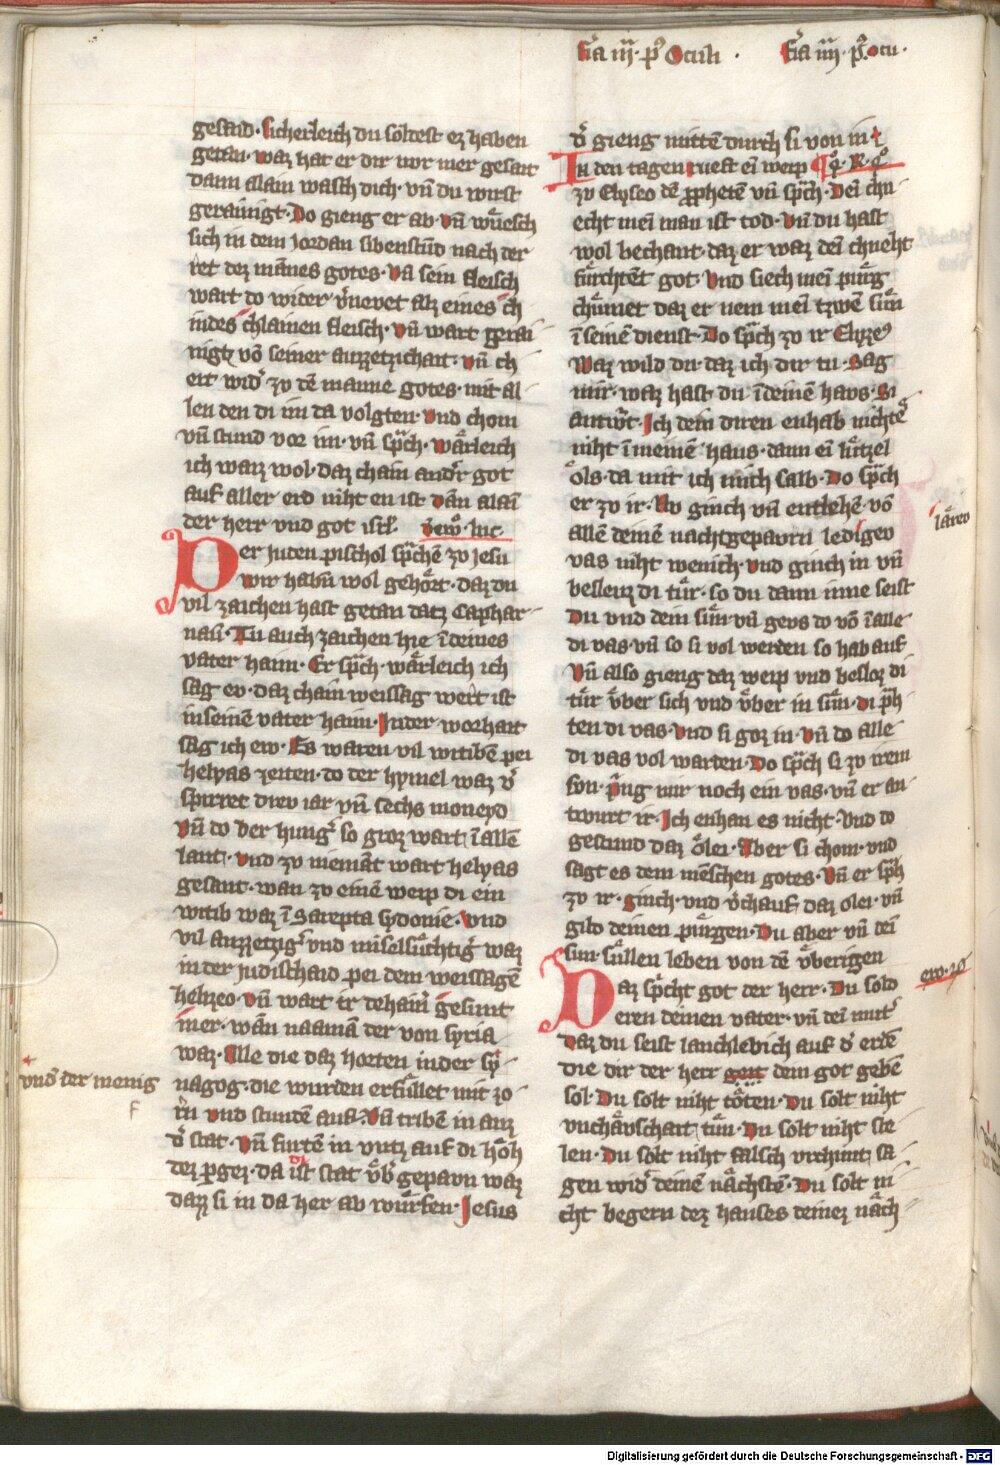 Fr̄a iij · p9 Oculi ·
Fr̄a iiij · p9 · ocu ·
gesaid · sicherleich du soldest ez haben
getan · waz hat er dir nor mer gesait
dann alain wasch dich · vn̄ du wirst
gerainigt · Do gieng er ab · vn̄ wuͦesch
sich in dem Jordan sibenstūd nach der
ret dez mānes gotes · Vn̄ sein fleisch
wart do wider v̓nevet alz eines ch
indes chlainen fleisch · vn̄ wart gerai
nigt vō seiner auzzetzichait · vn̄ ch
ert wid̓ zu dē manne gotes · mit al
len den di im da volgten · vnd chom
vn̄ stund vor im · vn̄ sp̄ch · waͤrleich
ich waiz wol · daz chain and̓r got
auf aller erd niht en ist dān alaī
der herr vnd got isrl̄ · ewͦ · luc ·
Der juden pischol sp̄chē zu Jesu
wir habn̄ wol gehoͤrt · daz du
vil zaichen hast getan datz Caphar
naū · Tu auch zaichen hie ī deines
vater haim · Er sp̄ch · waͤrleich ich
sag ev · daz chain weissag wert ist
in seinē vater haim · In der worhait
sag ich ew · Es waren vil witibē pei
helyas zeiten · do der hymel waz v̓
spirret drev iar vn̄ sechs moneyd
vn̄ do der hung̓ so groz wart · ī allē
lant · vnd zu niemāt wart helyas
gesant · wan zu einē weip di ein
witib waz ī Sarepta sydonie · vnd
vil auzzetzig̓ vnd miselsuͤchtig̓ waz
in der Judischaid pei dem weissagē
helyzeo · vn̄ wart ir dehain̓ gesunt
mer · wān naamā der von syria
waz · Alle die daz horten in der sy
nagog · die wurden erfuͤllet mit zo
rn̄ vnd stundē auf · Vn̄ tribē in auz
d̓ stat · Vn̄ furtē in vntz auf di hoͤh
dez p̄gez · da di ir stat vͦb̓ gepavn waz
daz si in da her ab wuͤrfen · Jesus
vnd̓ der menig
d̓ gieng mittē durch si von in
In den tagen rueft eī weip q̊ · R · q̊
zu Elyseo dē p̄phetē vn̄ sp̄ch · Deī chn̄
echt meī man ist tod · vn̄ du hast
wol bechant · daz er waz deī chneht
fuͤrchtēt got · vnd siech meī puͤrg
chuͤmet daz er nem meī tzwēn suͤn
ī seinē dienst · Do sp̄ch zu ir Elyze9
Waz wild du daz ich dir tu · Sag
mir · waz hast du ī deinē havs · Si
antw̓t · Ich dein diren enhab nichtē
niht ī meinē haus · dann eī luͤtzel
oͤls · da mit ich mich salb · Do sp̄ch
er zu ir · Nv ginch vn̄ entlehē · vō
allē deinē nachtgepavrn ledigev lærev
vas niht wenich · vnd ginch in vn̄
besleuz di tuͤr · so du dann inne seist
Du vnd dein suͤn vn̄ gevs do vō ī alle
di vas · vn̄ so si vol werden so hab auf
Vn̄ also gieng daz weip vnd besloz di
tuͤr vͤber sich vnd vͤber ir suͤn · di p̄h
ten di vas · vnd si goz in · vn̄ do alle
di vas vol warden · Do sp̄ch si zu irem
svn · p̄ng mir noch ein vas · vn̄ er an
twurt ir · Ich enhan es nicht · Vnd do
gestund daz oͤlei · Aber si chom · vnd
sagt es dem mēschen gotes · Vn̄ er sp̄h
zu ir · ginch · vnd v̓chauf daz olei · vn̄
gild deinen puͤrgen · Du aber vn̄ deī
sun · suͤllen leben von dē vͤberigen
ew · 20
Daz sp̄cht got der herr · Du sold
eren deinen vater · vn̄ deī mut̓
daz du seist lanchlebich auf d̓ erdē
die dir der herr geit dem got gebē
sol · Du solt niht toͤten · Du solt niht
vnchaͤvschait tuͤn · Du solt niht ste
len · Du solt niht falsch vrchunt sa
gen wid̓ deinē naͤchstē · Du solt ni
cht begern dez hauses deinez naͤch
Digitalisierung gefördert durch die Deutsche Forschungsgemeinschaft - DFG